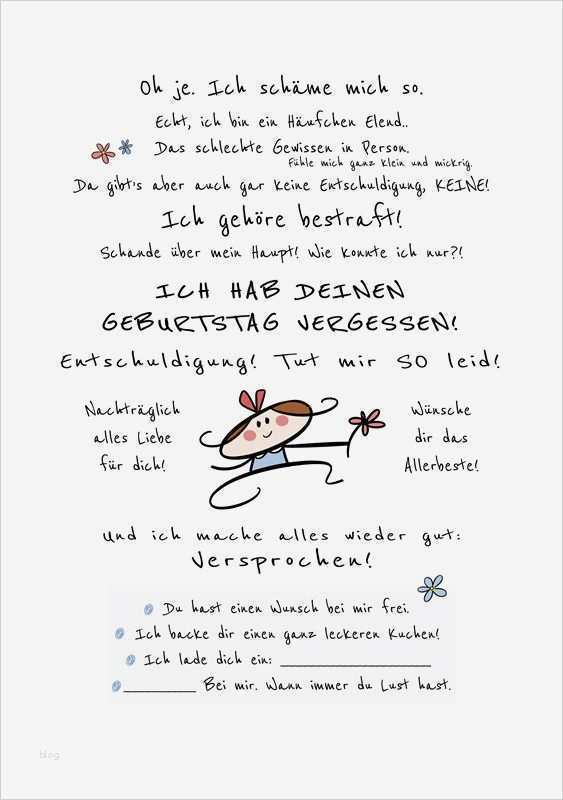 Oh je. Ich schäme mich so.
Echt, ich bin ein Häufchen Elend..
Das schlechte Gewissen in Person.
Fühle mich ganz klein und mickrig.
Da gibt's aber auch gar keine Entschuldigung, KEINE!
Ich gehöre bestraft!
Schande über mein Haupt! Wie konnte ich nur?!
ICH HAB DEINEN
GEBURTSTAG VERGESSEN!
Entschuldigung! Tut mir SO leid!
Nachträglich
alles Liebe
für dich!
Wünsche
dir das
Allerbeste!
Und ich mache alles wieder gut:
Versprochen!
Du hast einen Wunsch bei mir frei.
Ich backe dir einen ganz leckeren Kuchen!
Ich lade dich ein: ____________________
__________ Bei mir. Wann immer du Lust hast.
blog